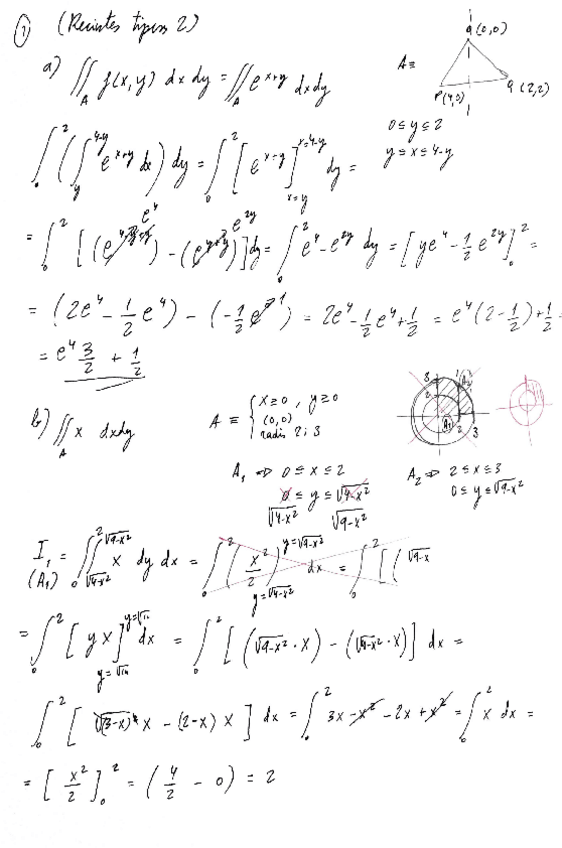 ① (Recintes tipus 2)
a) ∬_A f(x,y) dx dy = ∬_A e^{x+y} dx dy
A ≡
Q (0,0)
P(4,0)
Q (2,2)
0 ≤ y ≤ 2
y ≤ x ≤ 4-y
∫_0^2 (∫_y^{4-y} e^{x+y} dx) dy = ∫_0^2 [e^{x+y}]_{x=y}^{x=4-y} dy =
= ∫_0^2 [(e^4) - (e^{2y})] dy = ∫_0^2 e^4 - e^{2y} dy = [ye^4 - 1/2 e^{2y}]_0^2 =
= (2e^4 - 1/2 e^4) - (-1/2 e^0 1) = 2e^4 - 1/2 e^4 + 1/2 = e^4 (2 - 1/2) + 1/2 =
= e^4 3/2 + 1/2
b) ∬_A x dx dy
A ≡ { x ≥ 0, y ≥ 0
(0,0)
radis 2 i 3
3
2
A_2
A_1
2 3
A_1 ⇒ 0 ≤ x ≤ 2
0 ≤ y ≤ √(4-x²)
√(4-x²) √(9-x²)
A_2 ⇒ 2 ≤ x ≤ 3
0 ≤ y ≤ √(9-x²)
I_1 = ∫_0^2 ∫_{√(4-x²)}^{√(9-x²)} x dy dx = ∫_0^2 (x²/2)_{y=√(4-x²)}^{y=√(9-x²)} dx = ∫_0^2 [(√(9-x
(A_1)
= ∫_0^2 [yx]_{y=√}^{y=√} dx = ∫_0^2 [(√(9-x²) · x) - (√(4-x²) · x)] dx =
∫_0^2 [(3-x) x - (2-x) x] dx = ∫_0^2 3x - x² - 2x + x² = ∫_0^2 x dx =
= [x²/2]_0^2 = (4/2 - 0) = 2